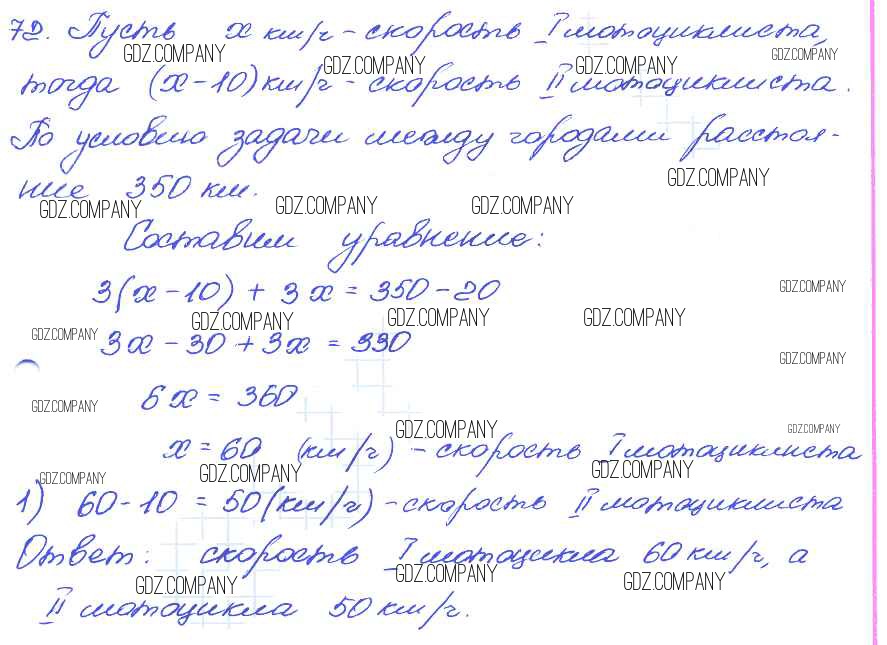 72. Пусть x км/ч - скорость I мотоциклиста,
GDZ.COMPANY GDZ.COMPANY
тогда (x-10) км/ч - скорость II мотоциклиста.
GDZ.COMPANY GDZ.COMPANY
По условию задачи между городами расстоя-
ние 350 км.
GDZ.COMPANY
GDZ.COMPANY GDZ.COMPANY GDZ.COMPANY
Составим уравнение:
3(x-10) + 3x = 350-20
GDZ.COMPANY
GDZ.COMPANY GDZ.COMPANY GDZ.COMPANY
3x - 30 + 3x = 330
GDZ.COMPANY
GDZ.COMPANY
6x = 360
GDZ.COMPANY
GDZ.COMPANY GDZ.COMPANY
x = 60 (км/ч) - скорость I мотоциклиста
GDZ.COMPANY GDZ.COMPANY GDZ.COMPANY
1) 60-10 = 50(км/ч) - скорость II мотоциклиста
Ответ: скорость I мотоцикла 60 км/ч, а
GDZ.COMPANY GDZ.COMPANY GDZ.COMPANY
II мотоцикла 50 км/ч.